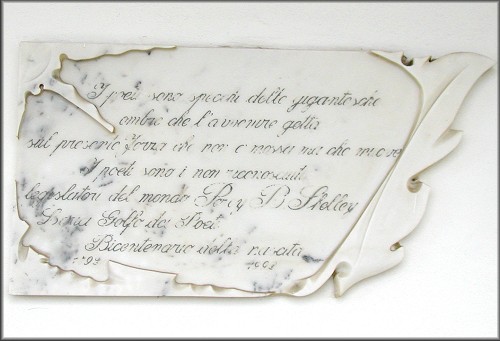 I poeti sono specchi delle gigantesche
ombre che l'avvenire getta
sul presente Forza che non è mossa ma che muove
I poeti sono i non riconosciuti
legislatori del mondo Percy B Shelley
Golfo dei Poeti
Bicentenario della nascita
1792